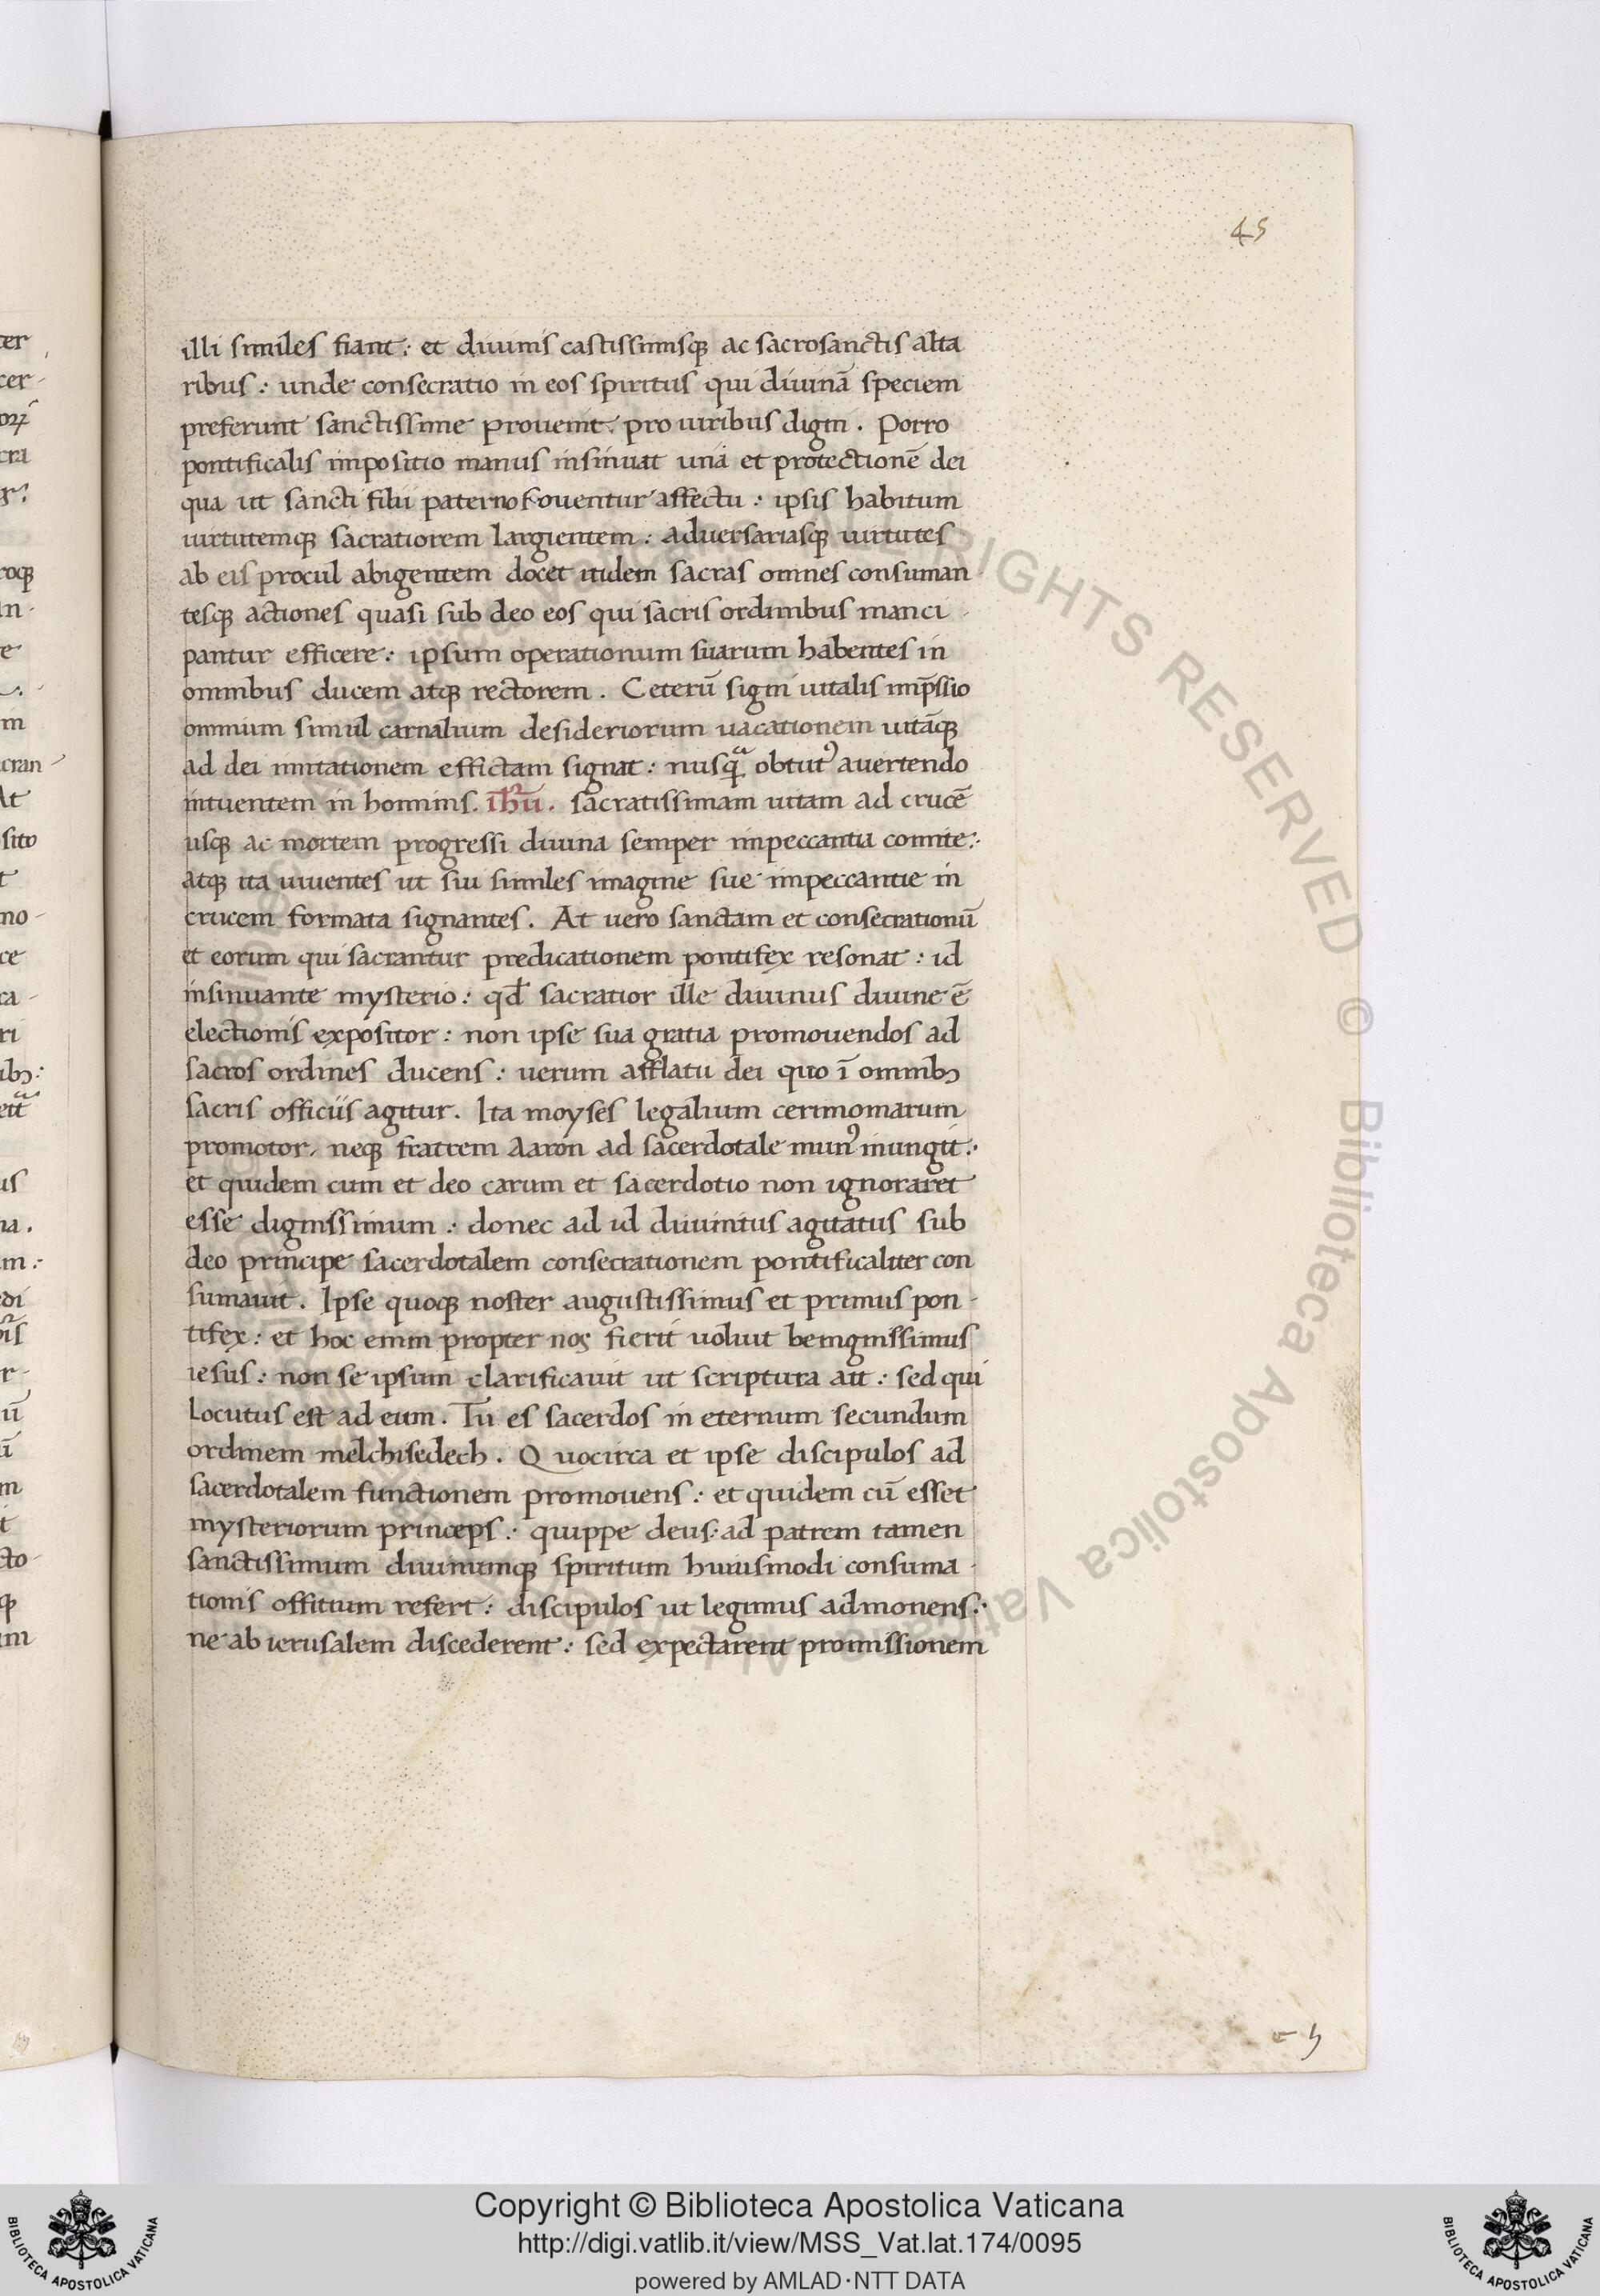 45
illi similes fiant: et diuinis castissimisqꝫ ac sacrosanctis alta
ribus: unde consecratio in eos spiritus qui diuinā speciem
preferunt sanctissime prouenit. pro uiribus digni. Porro
pontificalis impositio manus insinuat unā et protectionē dei
qua ut sancti filii paterno fouentur affectu: ipsis habitum
uirtutemqꝫ sacratiorem largientem: aduersariasqꝫ uirtutes
ab eis procul abigentem docet itidem sacras omnes consuman
tesqꝫ actiones quasi sub deo eos qui sacris ordinibus manci-
pantur efficere: ipsum operationum suarum habentes in
omnibus ducem atqꝫ rectorem. Ceterū signi uitalis imp̄ssio
omnium simul carnalium desideriorum uacationem uitāqꝫ
ad dei imitationem effictam signat: nusqᷓ obtutꝰ auertendo
intuentem in hominis. ihū. sacratissimam uitam ad crucē
usqꝫ ac mortem progressi diuina semper impeccantia comite:
atqꝫ ita uiuentes ut sui similes imagine sue impeccantie in
crucem formata signantes. At uero sanctam et consecrationū
et eorum qui sacrantur predicationem pontifex resonat: id
insinuante mysterio: qđ sacratior ille diuinus diuine ē
electionis expositor: non ipse sua gratia promouendos ad
sacros ordines ducens: uerum afflatu dei quo ī omnibꝫ
sacris officiis agitur. Ita moyses legalium cerimoniarum
promotor, neqꝫ fratrem Aaron ad sacerdotale munꝰ inungit:
et quidem cum et deo carum et sacerdotio non ignoraret
esse dignissimum: donec ad id diuinitus agitatus sub
deo principe sacerdotalem consecrationem pontificaliter con
sumauit. Ipse quoqꝫ noster augustissimus et primus pon-
tifex: et hoc enim propter nos fieri uoluit benignissimus
iesus: non se ipsum clarificauit ut scriptura ait: sed qui
locutus est ad eum. Tu es sacerdos in eternum secundum
ordinem melchisedech. Quocirca et ipse discipulos ad
sacerdotalem functionem promouens: et quidem cū esset
mysteriorum princeps: quippe deus: ad patrem tamen
sanctissimum diuinumqꝫ spiritum huiusmodi consuma-
tionis offitium refert: discipulos ut legimus admonens:
ne ab ierusalem discederent: sed expectarent promissionem
Copyright © Biblioteca Apostolica Vaticana
http://digi.vatlib.it/view/MSS_Vat.lat.174/0095
powered by AMLAD·NTT DATA